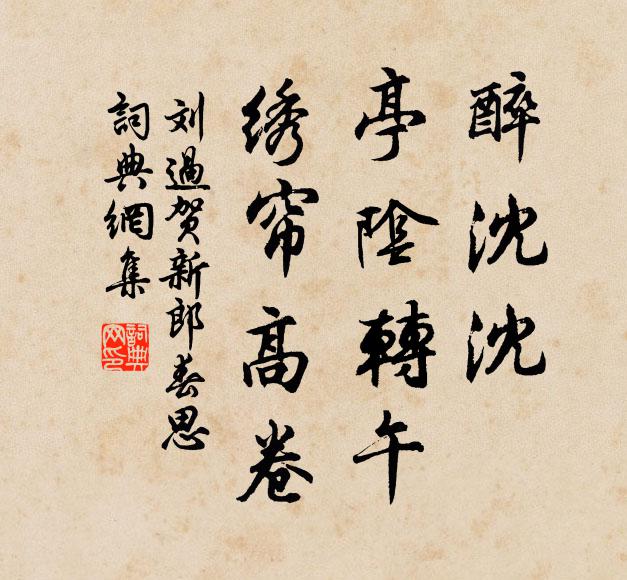 醉沈沈
亭陰轉午
绣帘高卷
刘過贺新郎春思
詞典網集
詞典
网印